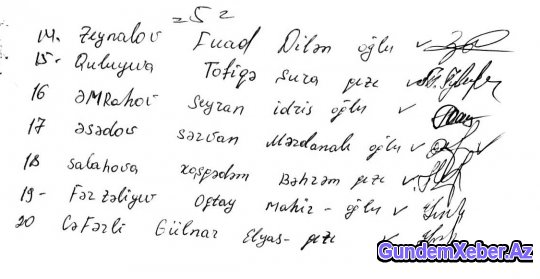 -5-
14. Zeynalov Fuad Dilən oğlu v
15. Quluyeva Tofiqə Sura qızı v
16 Əmrahov Seyran idris oğlu v
17 Əsədov Sərvan Mərdanalı oğlu v
18 Salahova Xaşpədəm Bəhrəm qızı v
19- Fərzəliyev Oqtay Mahir - oğlu v
20 Cəfərli Gülnar Elyas- qızı v
GundemXeber.Az